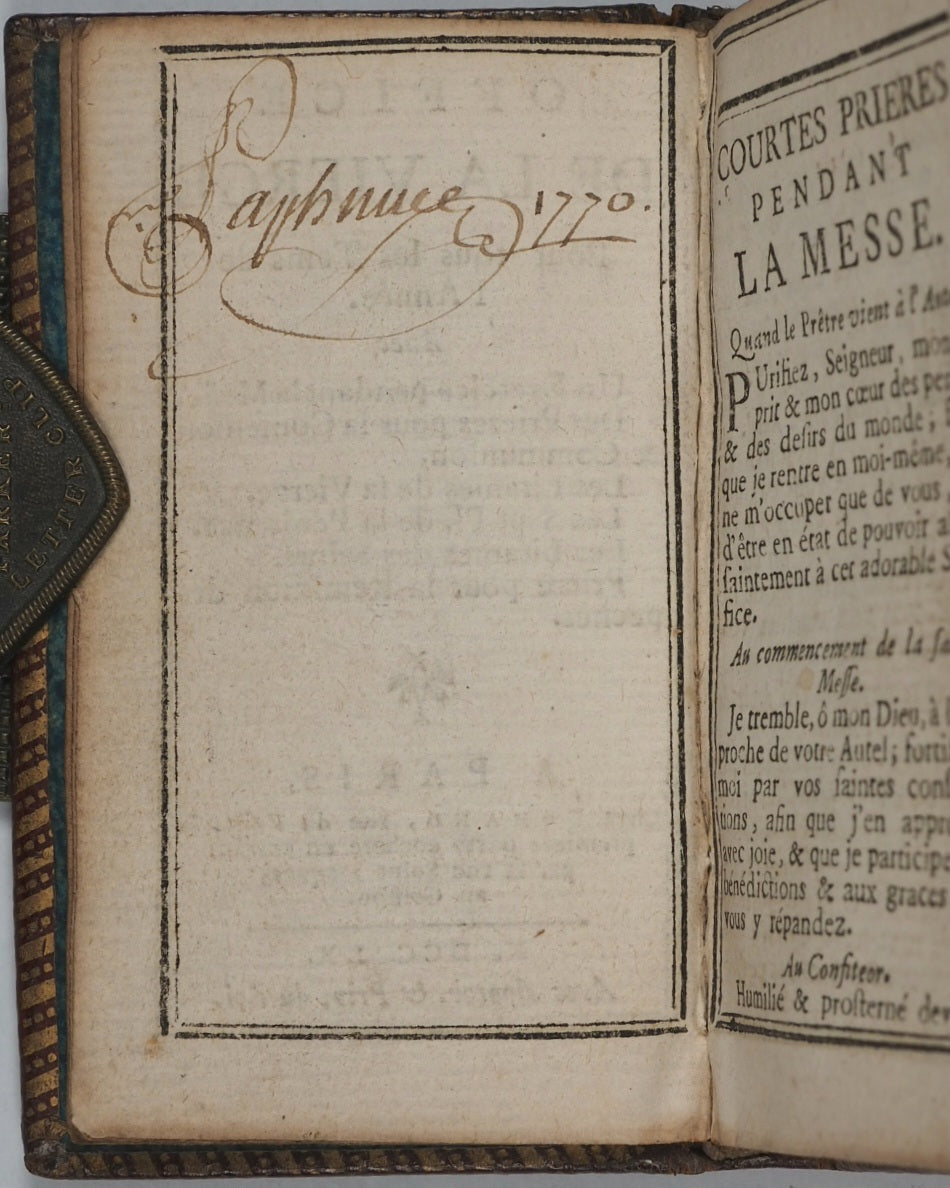 Paphnuce 1770.
PARKER
LETTER CLIP
COURTES PRIERES
PENDANT
LA MESSE.
Quand le Prêtre vient à l'Aut
PUrifiez, Seigneur, mon
prit & mon cœur des pen
& des desirs du monde;
que je rentre en moi-même,
ne m'occuper que de vous
d'être en état de pouvoir a
ſaintement à cet adorable S
fice.
Au commencement de la ſa
Meſſe.
Je tremble, ô mon Dieu, à
proche de votre Autel; forti
moi par vos ſaintes conſ
tions, afin que j'en appr
avec joie, & que je participe
bénédictions & aux graces
vous y répandez.
Au Confiteor.
Humilié & proſterné dev